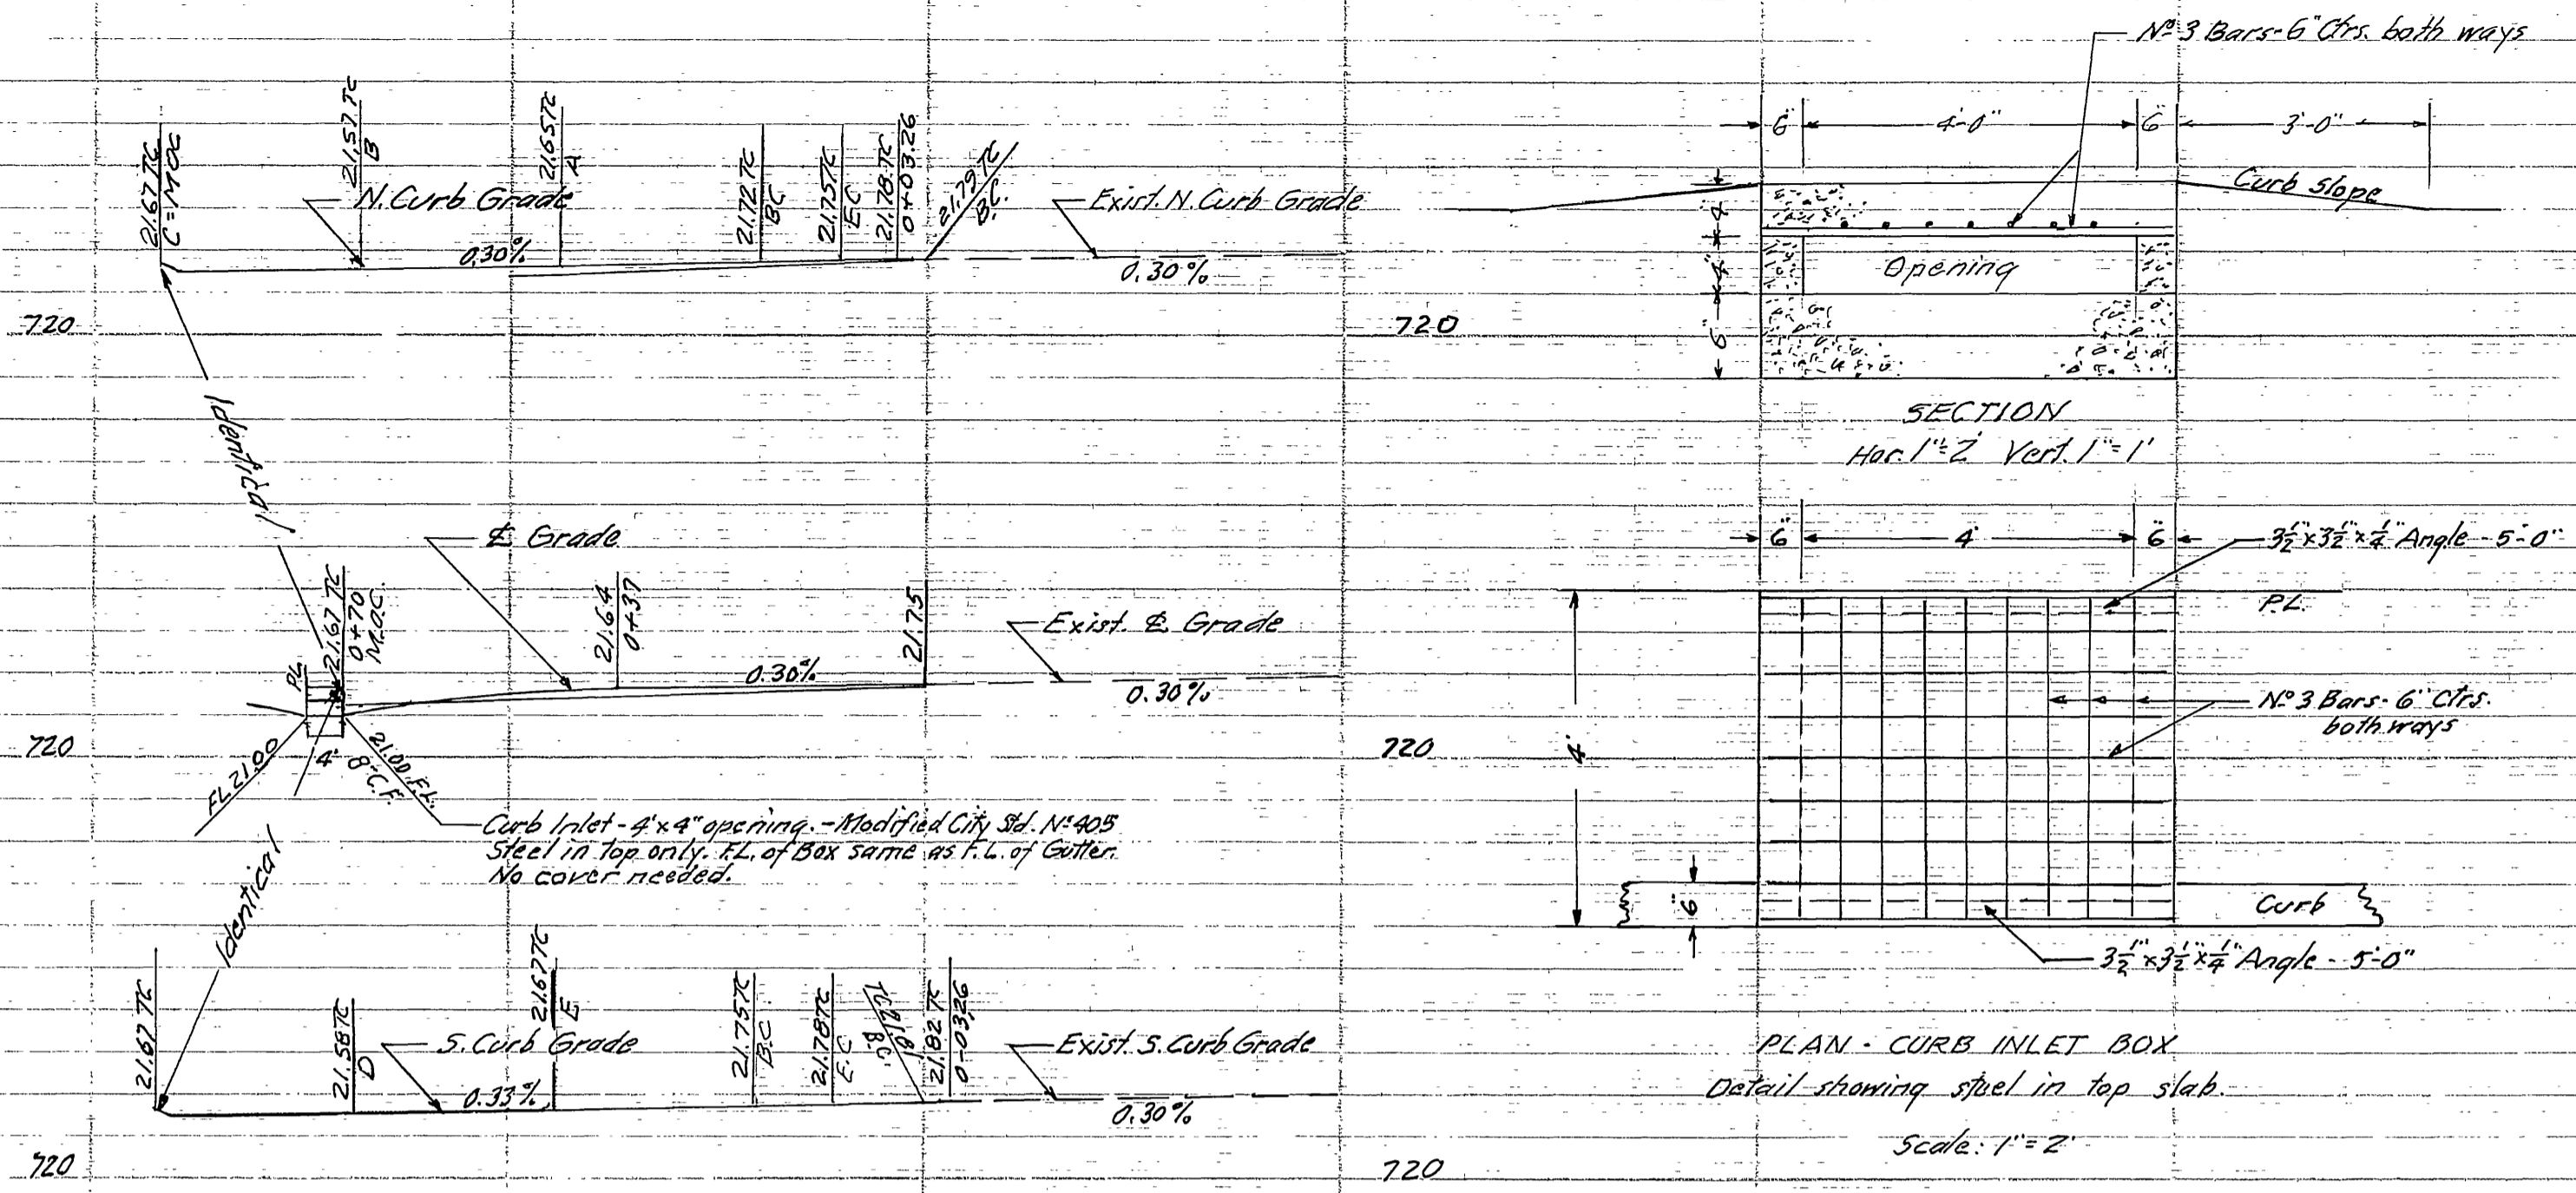 21.67 TC
C=MOC
21.57 TC
B
21.65 TC
A
21.72 TC
BC
21.75 TC
E.C
21.78 TC
0+03.26
21.79 TC
B.C.
N. Curb Grade
0.30%
Exist. N. Curb Grade
0.30%
720
720
Identical
₵ Grade
21.67 TC
0+70
M.O.C.
PL
21.64
0+37
21.75
0.30%
Exist. ₵ Grade
0.30%
720
720
FL 21.00
4'
8" C.F.
21.00 F.L.
Curb Inlet - 4'x4" opening. - Modified City Std. Nº 405
Steel in top only. F.L. of Box same as F.L. of Gutter.
No cover needed.
Identical
21.67 TC
21.58 TC
D
21.67 TC
E
21.75 TC
B.C.
21.78 TC
E.C
B.C.
21.82 TC
0-03.26
S. Curb Grade
0.33%
Exist. S. Curb Grade
0.30%
720
720
Nº 3 Bars - 6" Ctrs. both ways
6"
4'-0"
6"
3'-0"
Curb Slope
4"
4"
6"
Opening
SECTION
Hor. 1"=2' Vert. 1"=1'
6"
4'
6"
3½"x3½"x¼" Angle - 5'-0"
P.L.
Nº 3 Bars - 6" Ctrs.
both ways
4'
6"
Curb
3½"x3½"x¼" Angle - 5'-0"
PLAN - CURB INLET BOX
Detail showing steel in top slab.
Scale: 1"=2'